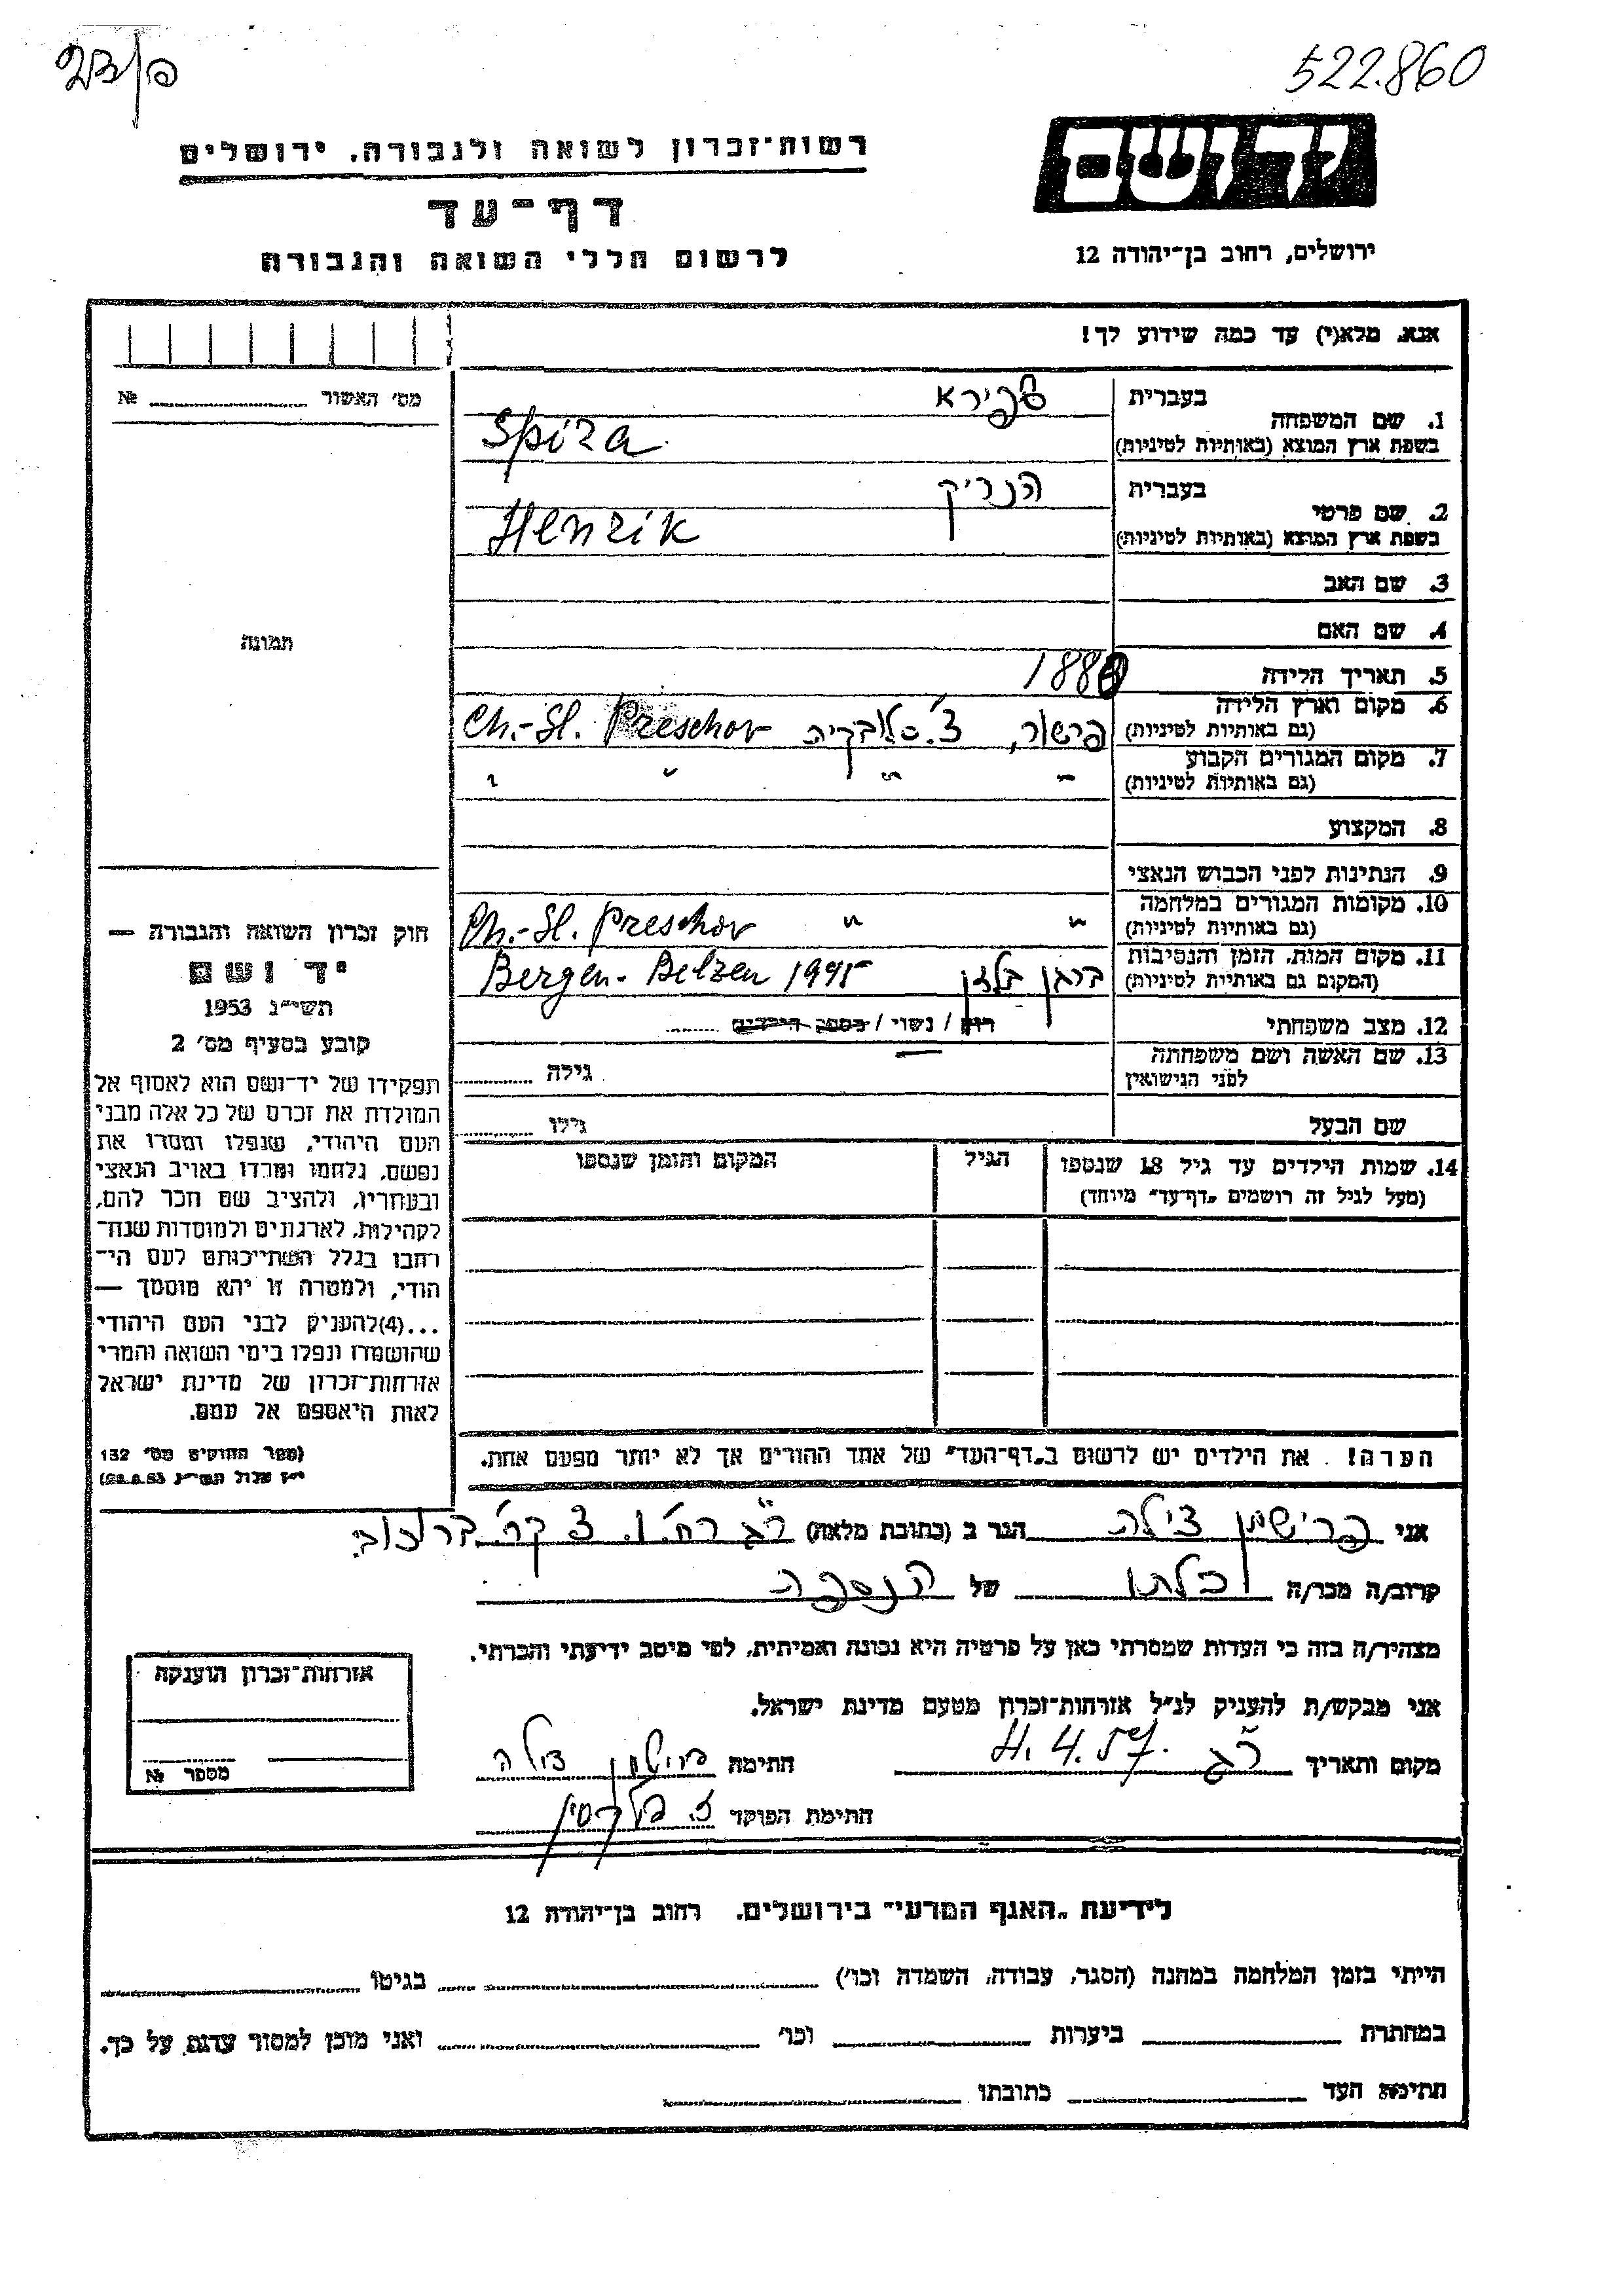 522.860
יד ושם
ירושלים, רחוב בן־יהודה 12
רשות־זכרון לשואה ולגבורה, ירושלים
דף־עד
לרשום חללי השואה והגבורה
אנא, מלא(י) עד כמה שידוע לך!
מס׳ האשור № 
1. שם המשפחה בעברית ספירא
בשפת ארץ המוצא (באותיות לטיניות) Spira
2. שם פרטי בעברית הנריק
בשפת ארץ המוצא (באותיות לטיניות) Henrik
3. שם האב
4. שם האם
תמונה
5. תאריך הלידה 188
6. מקום וארץ הלידה
(גם באותיות לטיניות) פרשוב, צ׳.סלובקיה Ch.-Sl. Preschov
7. מקום המגורים הקבוע
(גם באותיות לטיניות) " " " "
8. המקצוע
9. הנתינות לפני הכבוש הנאצי
10. מקומות המגורים במלחמה
(גם באותיות לטיניות) " " Ch.-Sl. Preschov
11. מקום המות, הזמן והנסיבות
(המקום גם באותיות לטיניות) ברגן בלזן Bergen-Belzen 1945
12. מצב משפחתי רוק / נשוי / מספר הילדים
13. שם האשה ושם משפחתה
לפני הנישואין גילה
שם הבעל גילו
14. שמות הילדים עד גיל 18 שנספו הגיל המקום והזמן שנספו
(מעל לגיל זה רושמים „דף־עד" מיוחד)
הערה! את הילדים יש לרשום ב„דף־העד" של אחד ההורים אך לא יותר מפעם אחת.
חוק זכרון השואה והגבורה —
יד ושם
תשי״ג 1953
קובע בסעיף מס׳ 2
תפקידו של יד־ושם הוא לאסוף אל
המולדת את זכרם של כל אלה מבני
העם היהודי, שנפלו ומסרו את
נפשם, נלחמו ומרדו באויב הנאצי
ובעוזריו, ולהציב שם וזכר להם,
לקהילות, לארגונים ולמוסדות שנח־
רבו בגלל השתייכותם לעם הי־
הודי, ולמטרה זו יהא מוסמך —
...(4)להעניק לבני העם היהודי
שהושמדו ונפלו בימי השואה והמרי
אזרחות־זכרון של מדינת ישראל
לאות היאספם אל עמם.
(ספר החוקים מס׳ 132
י״ז אלול תשי״ג 28.8.53)
אני צילה הגר ב (כתובת מלאה) ר״ג רח׳
קרוב/ה מכר/ה כלתו של הנספה
מצהיר/ה בזה כי העדות שמסרתי כאן על פרטיה היא נכונה ואמיתית, לפי מיטב ידיעתי והכרתי.
אני מבקש/ת להעניק לנ״ל אזרחות־זכרון מטעם מדינת ישראל.
מקום ותאריך ר״ג 4.57 חתימה צילה
חתימת הפוקד
אזרחות־זכרון הוענקה
מספר №
לידיעת „האגף המדעי" בירושלים, רחוב בן־יהודה 12
הייתי בזמן המלחמה במחנה (הסגר, עבודה, השמדה וכו׳) בגיטו
במחתרת ביערות וכו׳ ואני מוכן למסור עדות על כך.
חתימת העד כתובתו